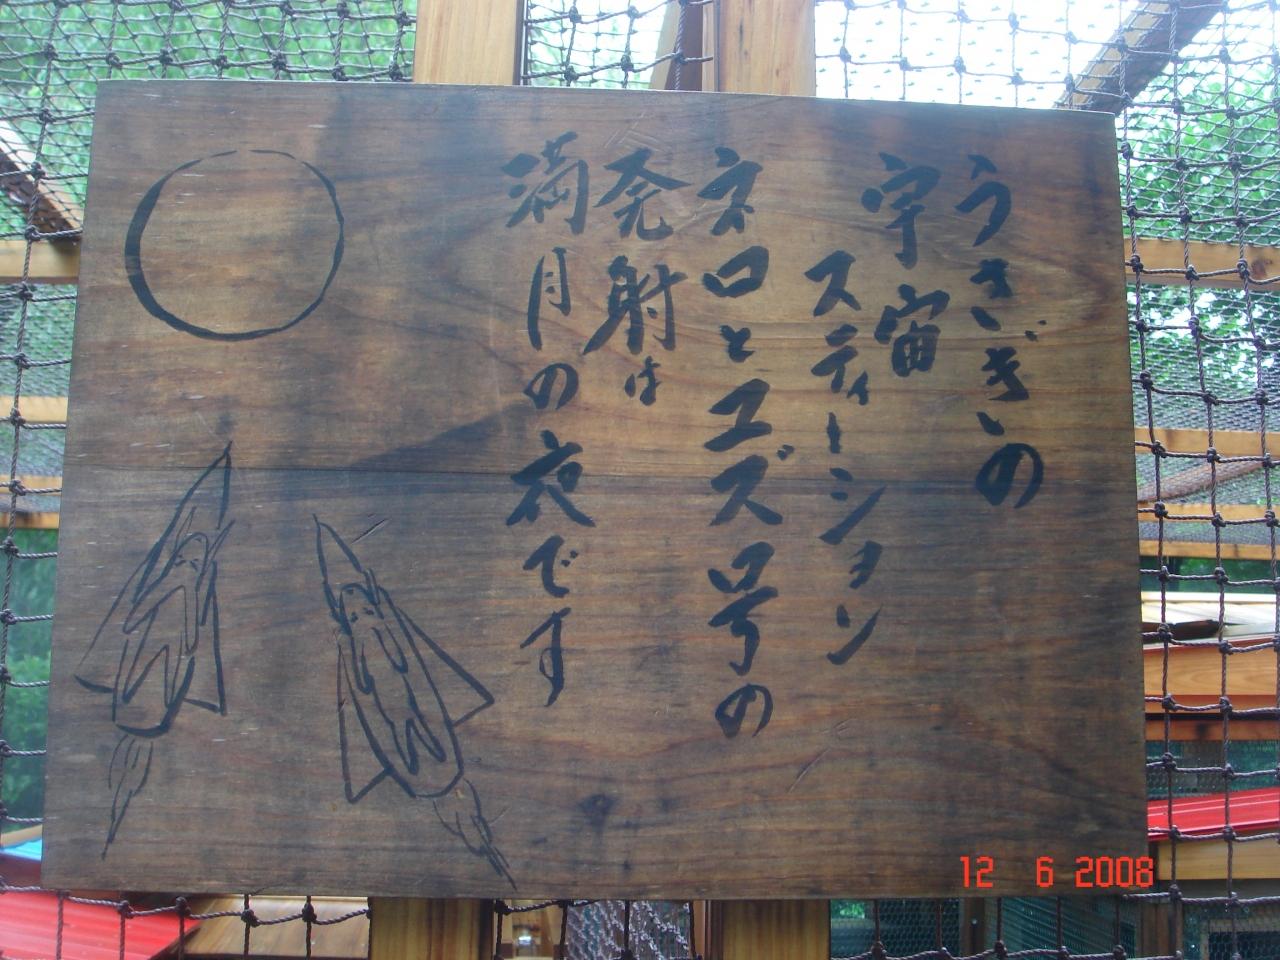 うさぎの
宇宙
ステーション
ネロとユズロ号の
発射は
満月の夜です
12 6 2008